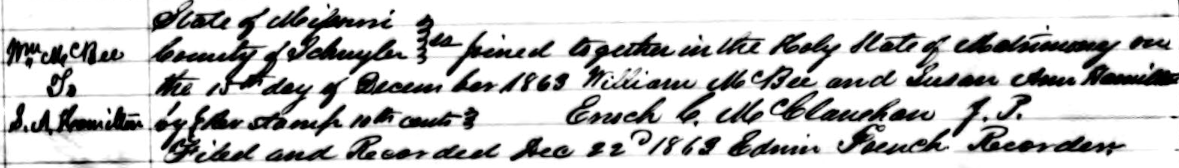 State of Missouri
Wm McBee County of Schuyler } ss joined together in the Holy State of Matrimony on
To the 15th day of December 1863 William McBee and Susan Ann Hamilton
S. A. Hamilton by Rev stamp 10th cents } Enoch C. McClanahan J. P.
Filed and Recorded Dec 22d 1863 Edwin French Recorder